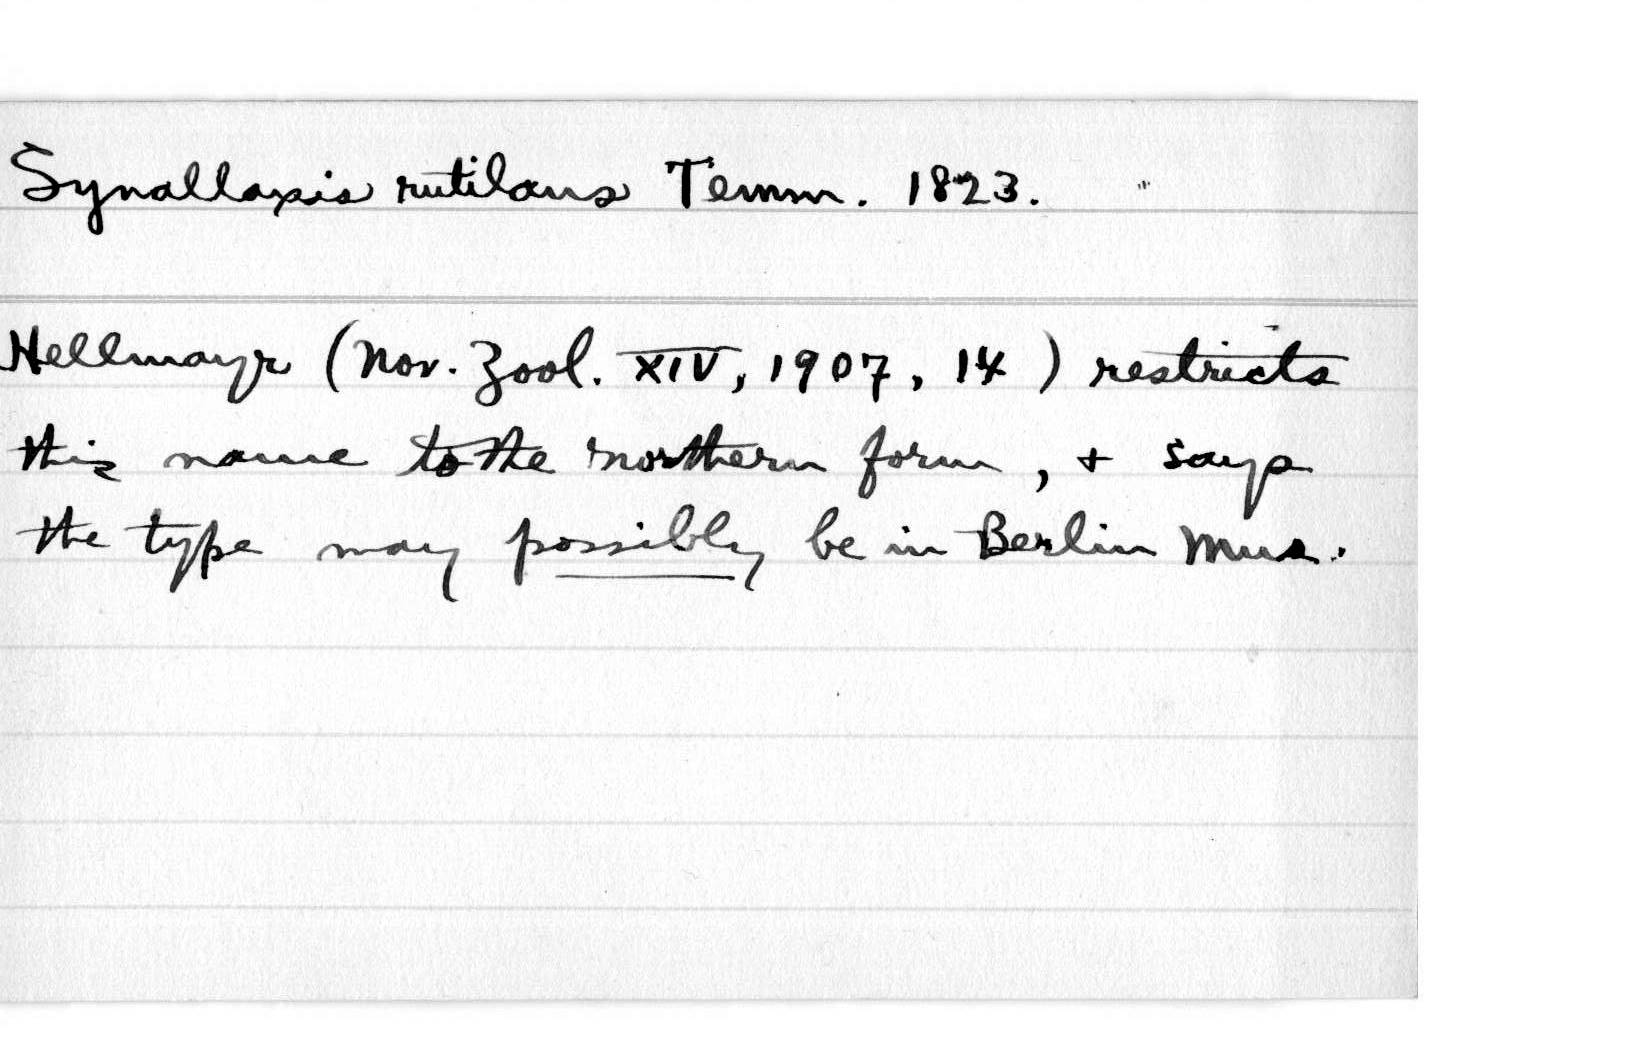 Synallaxis rutilans Temm. 1823.
Hellmayr (Nov. Zool. XIV, 1907, 14) restricts
this name to the northern form, + says
the type may possibly be in Berlin Mus.